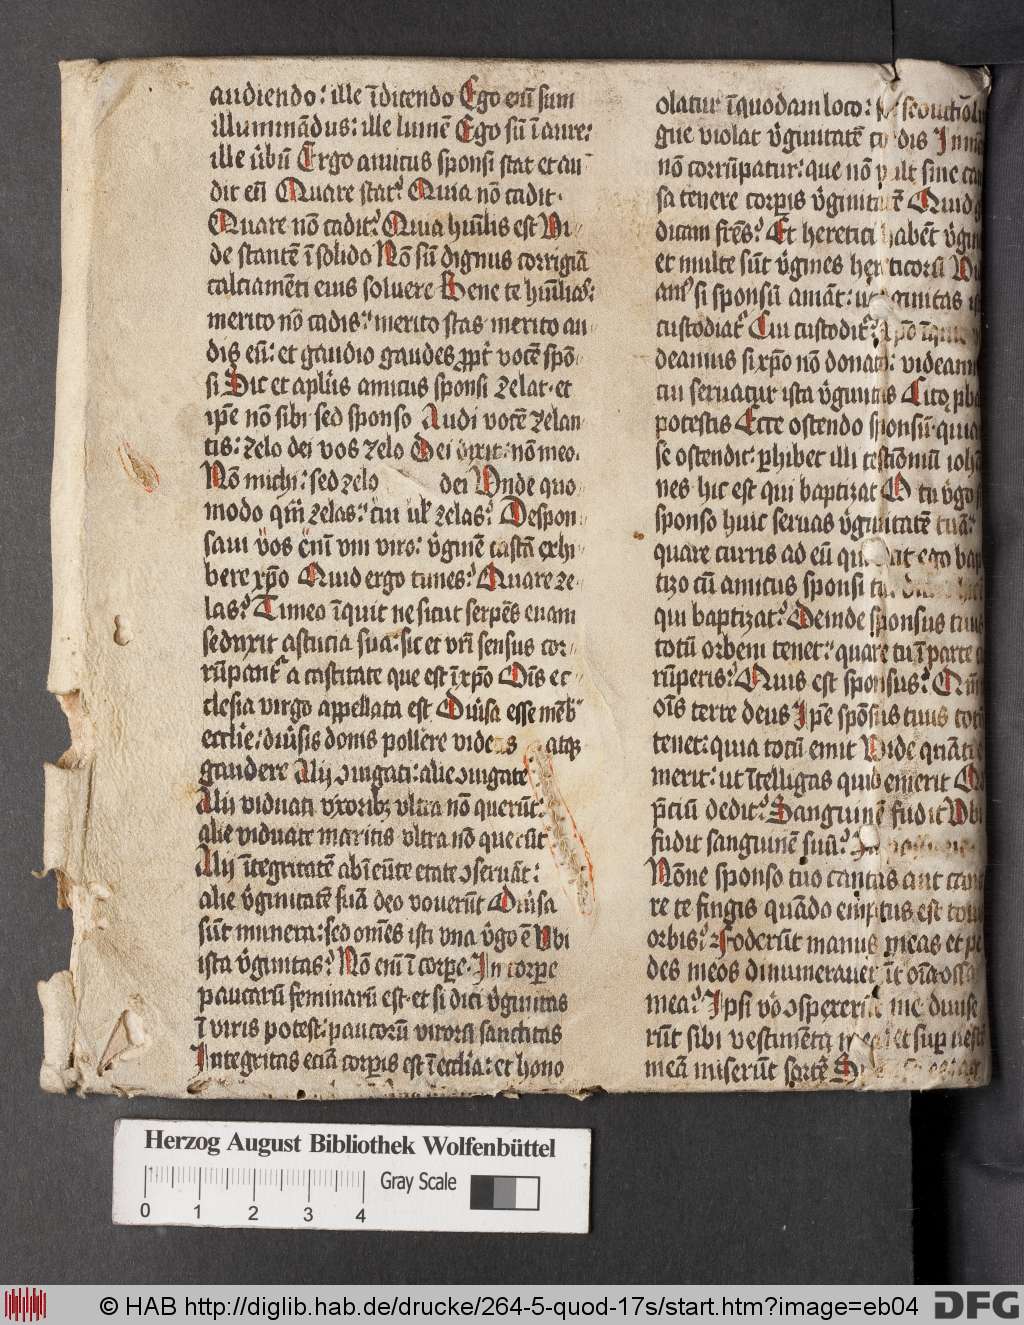 audiendo: ille ī dicendo Ego eni᷑ sum
illuminādus: ille lumē Ego sū ī aure:
ille v̓bū Ergo amicus sponsi stat et au
dit eū Quare stat? Quia nō cadit·
Quare nō cadit? Quia hūilis est Vi
de stantē ī solido Nō sū dignus corrigiā
calciamēti eius soluere Bene te hūilias:
merito nō cadis: merito stas merito au
dis eū: et gaudio gaudes ꝓpt̓ vocē spō
si Sic et apl̓us amicus sponsi zelat et
ip̄e nō sibi sed sponso Audi vocē zelan
tis: zelo dei vos zelo Dei dixit: nō meo·
Nō michi: sed zelo dei Vnde quo
modo zelas: cui zelas? Despon
saui vos eni᷑ vni viro: v̓ginē castā exhi
bere xp̄o Quid ergo times? Quare ze
las? Timeo īquit ne sicut serpēs euam
seduxit astucia sua: sic et vr̄i sensus cor
rūpant᷑ a castitate que est ī xp̄o Om̄s ec
clesia virgo appellata est Diu̓sa esse mēb
ecclīe: diu̓sis donis pollere atqꝫ
gaudere Alij ↄiugati: alie ↄiugate
Alij viduati vxoribꝫ vltra nō querūt:
alie viduate maritis vltra nō querūt
Alij ītegritatē ab īeūte etate ↄseruāt:
alie v̓ginitatē suā deo vouerūt Diu̓sa
sūt munera: sed om̄es isti vna v̓go ē Vbi
ista v̓ginitas? Nō eni᷑ ī corꝑe· In corꝑe
paucarū feminarū est· et si dici v̓ginitas
ī viris potest: paucorū virorū sanctitas
Integritas eciā corꝑis est ī ecclīa: et hono
olatur ī quodam loco:
gue violat v̓ginitatē cordis
nō corrūpatur: que nō vult sine
sa tenere corꝑis v̓ginitatē Quid
dicam fr̄es? Et heretici habēt
et multe sūt v̓gines hereticorū
si sponsū amāt: ut v̓ginitas
custodiat᷑ Cui custodit᷑?
deamus si xp̄o nō donat: videam
cui seruatur ista v̓ginitas Cito
potestis Ecce ostendo sponsū quia
se ostendit: ꝑhibet illi testimoniū
nes hic est qui baptizat O tu v̓go
sponso huic seruas v̓ginitatē tuā:
quare curris ad eū ego bap
tizo cū amicus sponsi
qui baptizat? Deinde sponsus tuus
totū orbem tenet: quare tu ī parte
rūperis? Quis est sponsus?
om̄s terre deus Ipe spōsus tuus totū
tenet: quia totū emit Vide quāti
merit: ut ītelligas quid emerit
p̄ciū dedit? Sanguinē fudit Vbi
fudit sanguinē suū?
Nōne sponso tuo cantas aut
re te fingis quādo emptus est
orbis? Foderūt manus meas et pe
des meos dinumerauerūt om̄ia ossa
mea? Ipsi vo̓ ↄspexerūt me diuise
rūt sibi vestimēta mea et suꝑ vestē
meā miserūt sortē
Herzog August Bibliothek Wolfenbüttel
0 1 2 3 4
Gray Scale
© HAB http://diglib.hab.de/drucke/264-5-quod-17s/start.htm?image=eb04
DFG